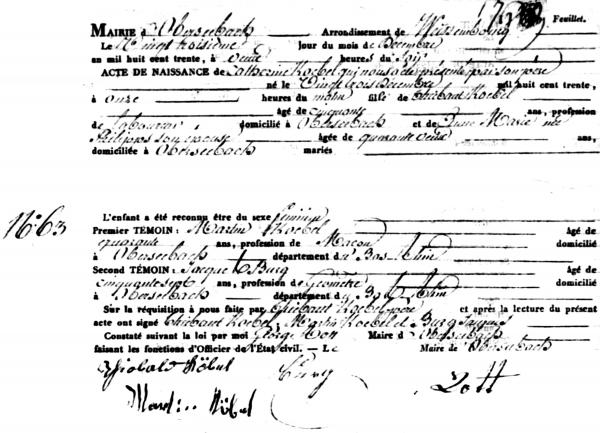 Feuillet.
MAIRIE d'Oberseebach Arrondissement de Wissembourg
Le vingt troisième jour du mois de Décembre
an mil huit cent trente, à onze heures du
ACTE DE NAISSANCE de Catherine Koebel qui nous a été présenté par son père
né le Vingt trois Décembre mil huit cent trente,
à onze heures du matin fille de Thiébaut Koebel
âgé de cinquante ans, profession
de laboureur, domicilié à Oberseebach et de Anne Marie née
Philipps son épouse âgée de quarante deux ans,
domiciliée à Oberseebach mariés
N.° 63
L'enfant a été reconnu être du sexe féminin
Premier TÉMOIN : Martin Koebel âgé de
quarante ans, profession de Maçon domicilié
à Oberseebach département du Bas Rhin
Second TÉMOIN : Jacques Burg âgé de
cinquante sept ans, profession de Géomètre domicilié
à Oberseebach département du Bas Rhin
Sur la réquisition à nous faite par Thiébaut Koebel père et après la lecture du présent
acte ont signé Thiébaut Koebel, Martin Koebel et Burg Jacques
Constaté suivant la loi par moi George Zott Maire d'Oberseebach
faisant les fonctions d'Officier de l'État civil. — Le Maire de Oberseebach
Thiobald Köbel Burg Zott
Martin Köbel